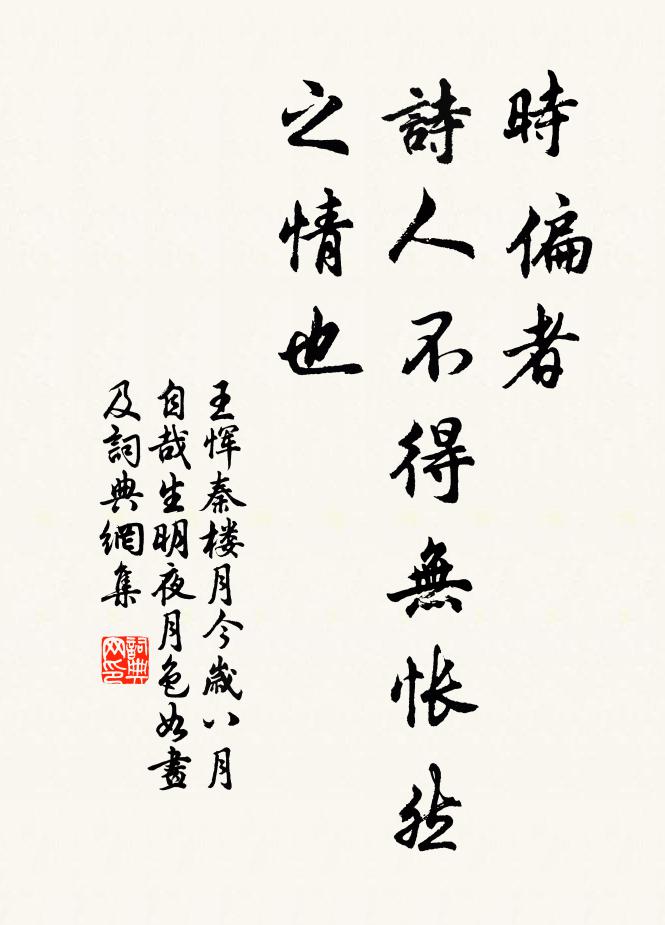 時偏者
詩人不得無悵然
之情也
王惲秦楼月今歲八月
自哉生明夜月色如晝
及詞典網集
詞典
网印